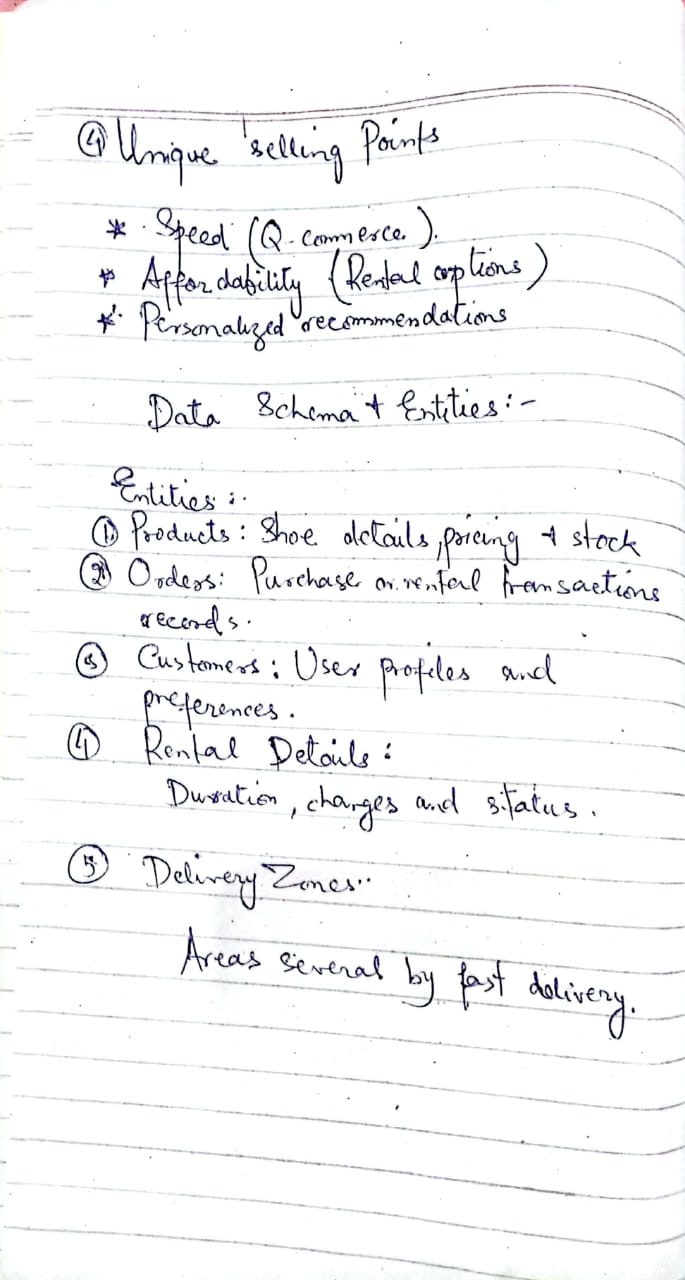 ④ Unique selling Points
* Speed (Q-commerce).
* Affordability (Rental options)
* Personalized recommendations
Data Schema & Entities:-
Entities:-
① Products: Shoe details, pricing & stock
② Orders: Purchase or rental transactions
records.
③ Customers: User profiles and
preferences.
④ Rental Details:
Duration, charges and status.
⑤ Delivery Zones:-
Areas several by fast delivery.